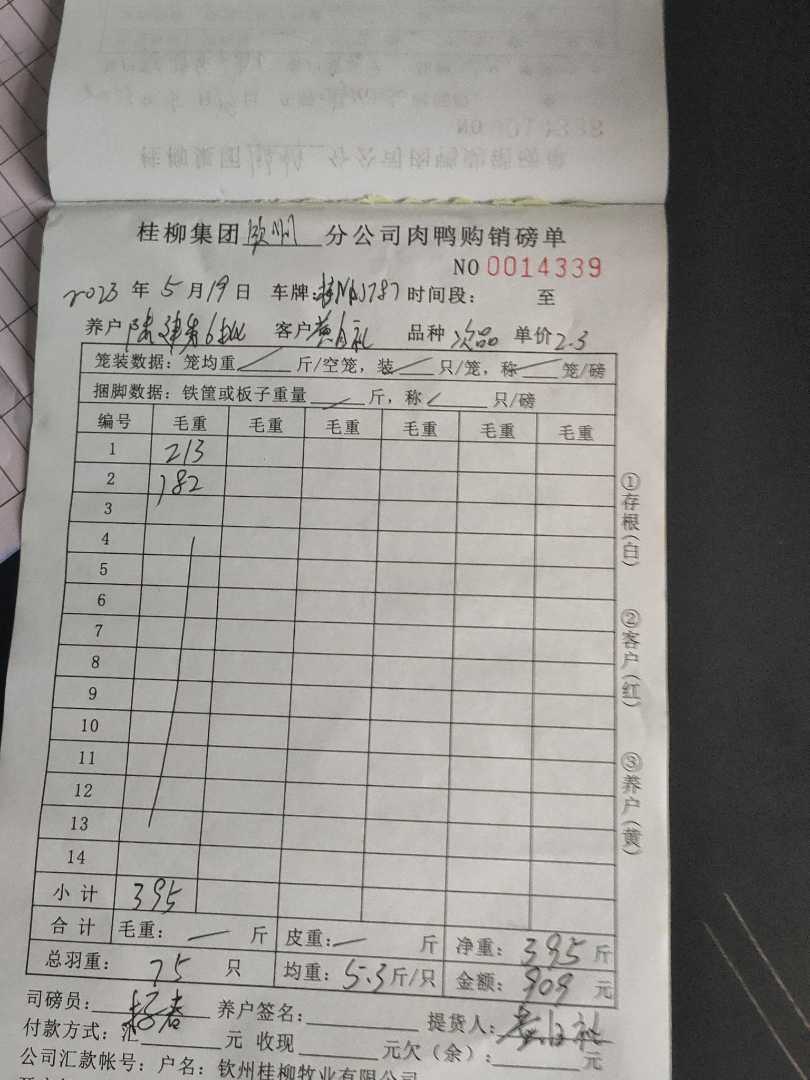 桂柳集团 钦州 分公司肉鸭购销磅单
NO 0014339
2023 年 5 月 19 日 车牌: 时间段: 至
养户 6批 客户 黄 礼 品种 次品 单价 2.3
笼装数据: 笼均重 斤/空笼, 装 只/笼, 称 笼/磅
捆脚数据: 铁筐或板子重量 斤, 称 只/磅
编号 毛重 毛重 毛重 毛重 毛重 毛重
1 213
2 182
3
4
5
6
7
8
9
10
11
12
13
14
小计 395
合计 毛重: 斤 皮重: 斤 净重: 395 斤
总羽重: 75 只 均重: 5.3 斤/只 金额: 909 元
司磅员: 杨春 养户签名: 提货人: 黄 礼
付款方式: 汇 元 收现 元欠(余): 元
公司汇款帐号: 户名: 钦州桂柳牧业有限公司
①存根(白)
②客户(红)
③养户(黄)